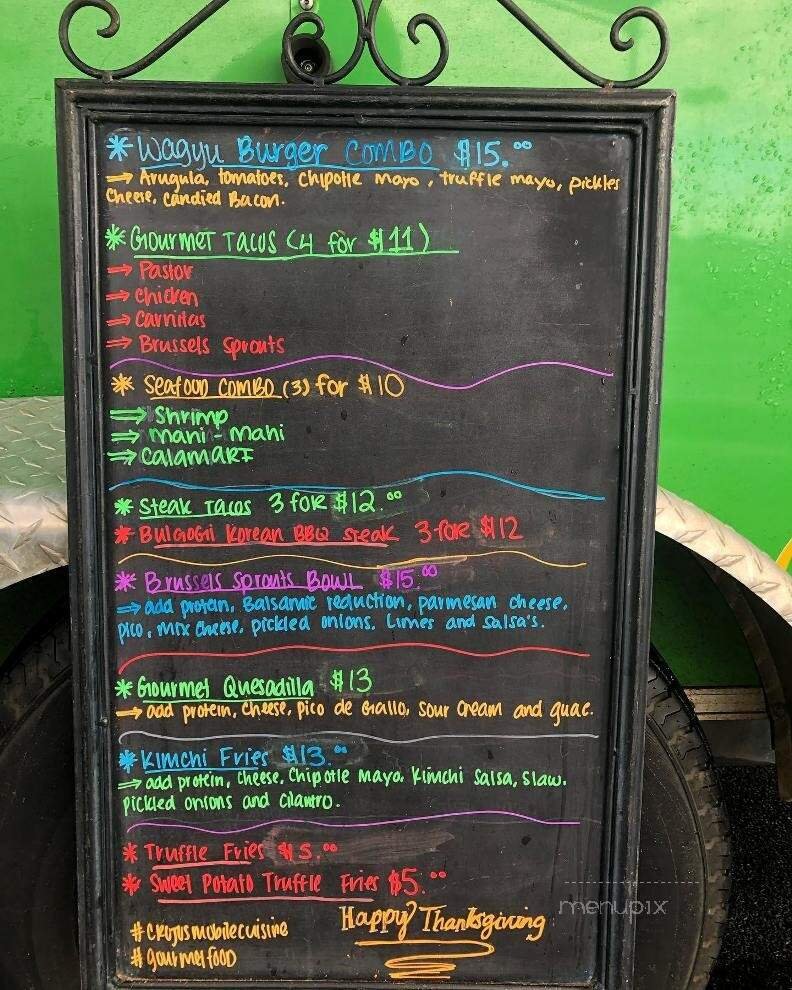 * Wagyu Burger Combo $15.00
⇒ Arugula, tomatoes, Chipotle mayo, truffle mayo, pickles
Cheese, candied Bacon.
* Gourmet Tacos (4 for $11)
⇒ Pastor
⇒ Chicken
⇒ Carnitas
⇒ Brussels sprouts
* Seafood Combo (3) for $10
⇒ Shrimp
⇒ mahi-mahi
⇒ CALAMARI
* Steak Tacos 3 for $12.00
* Bulgogi Korean BBQ steak 3 for $12
* Brussels sprouts Bowl $15.00
⇒ add protein, Balsamic reduction, parmesan cheese,
pico, mix cheese, pickled onions, Limes and salsa's.
* Gourmet Quesadilla $13
⇒ add protein, cheese, pico de Gallo, sour cream and guac.
* Kimchi Fries $13.00
⇒ add protein, cheese, chipotle mayo, kimchi salsa, slaw,
pickled onions and cilantro.
* Truffle Fries $5.00
* Sweet Potato Truffle Fries $5.00
Happy Thanksgiving
#crujusmobilecuisine
#gourmetfood
menupix